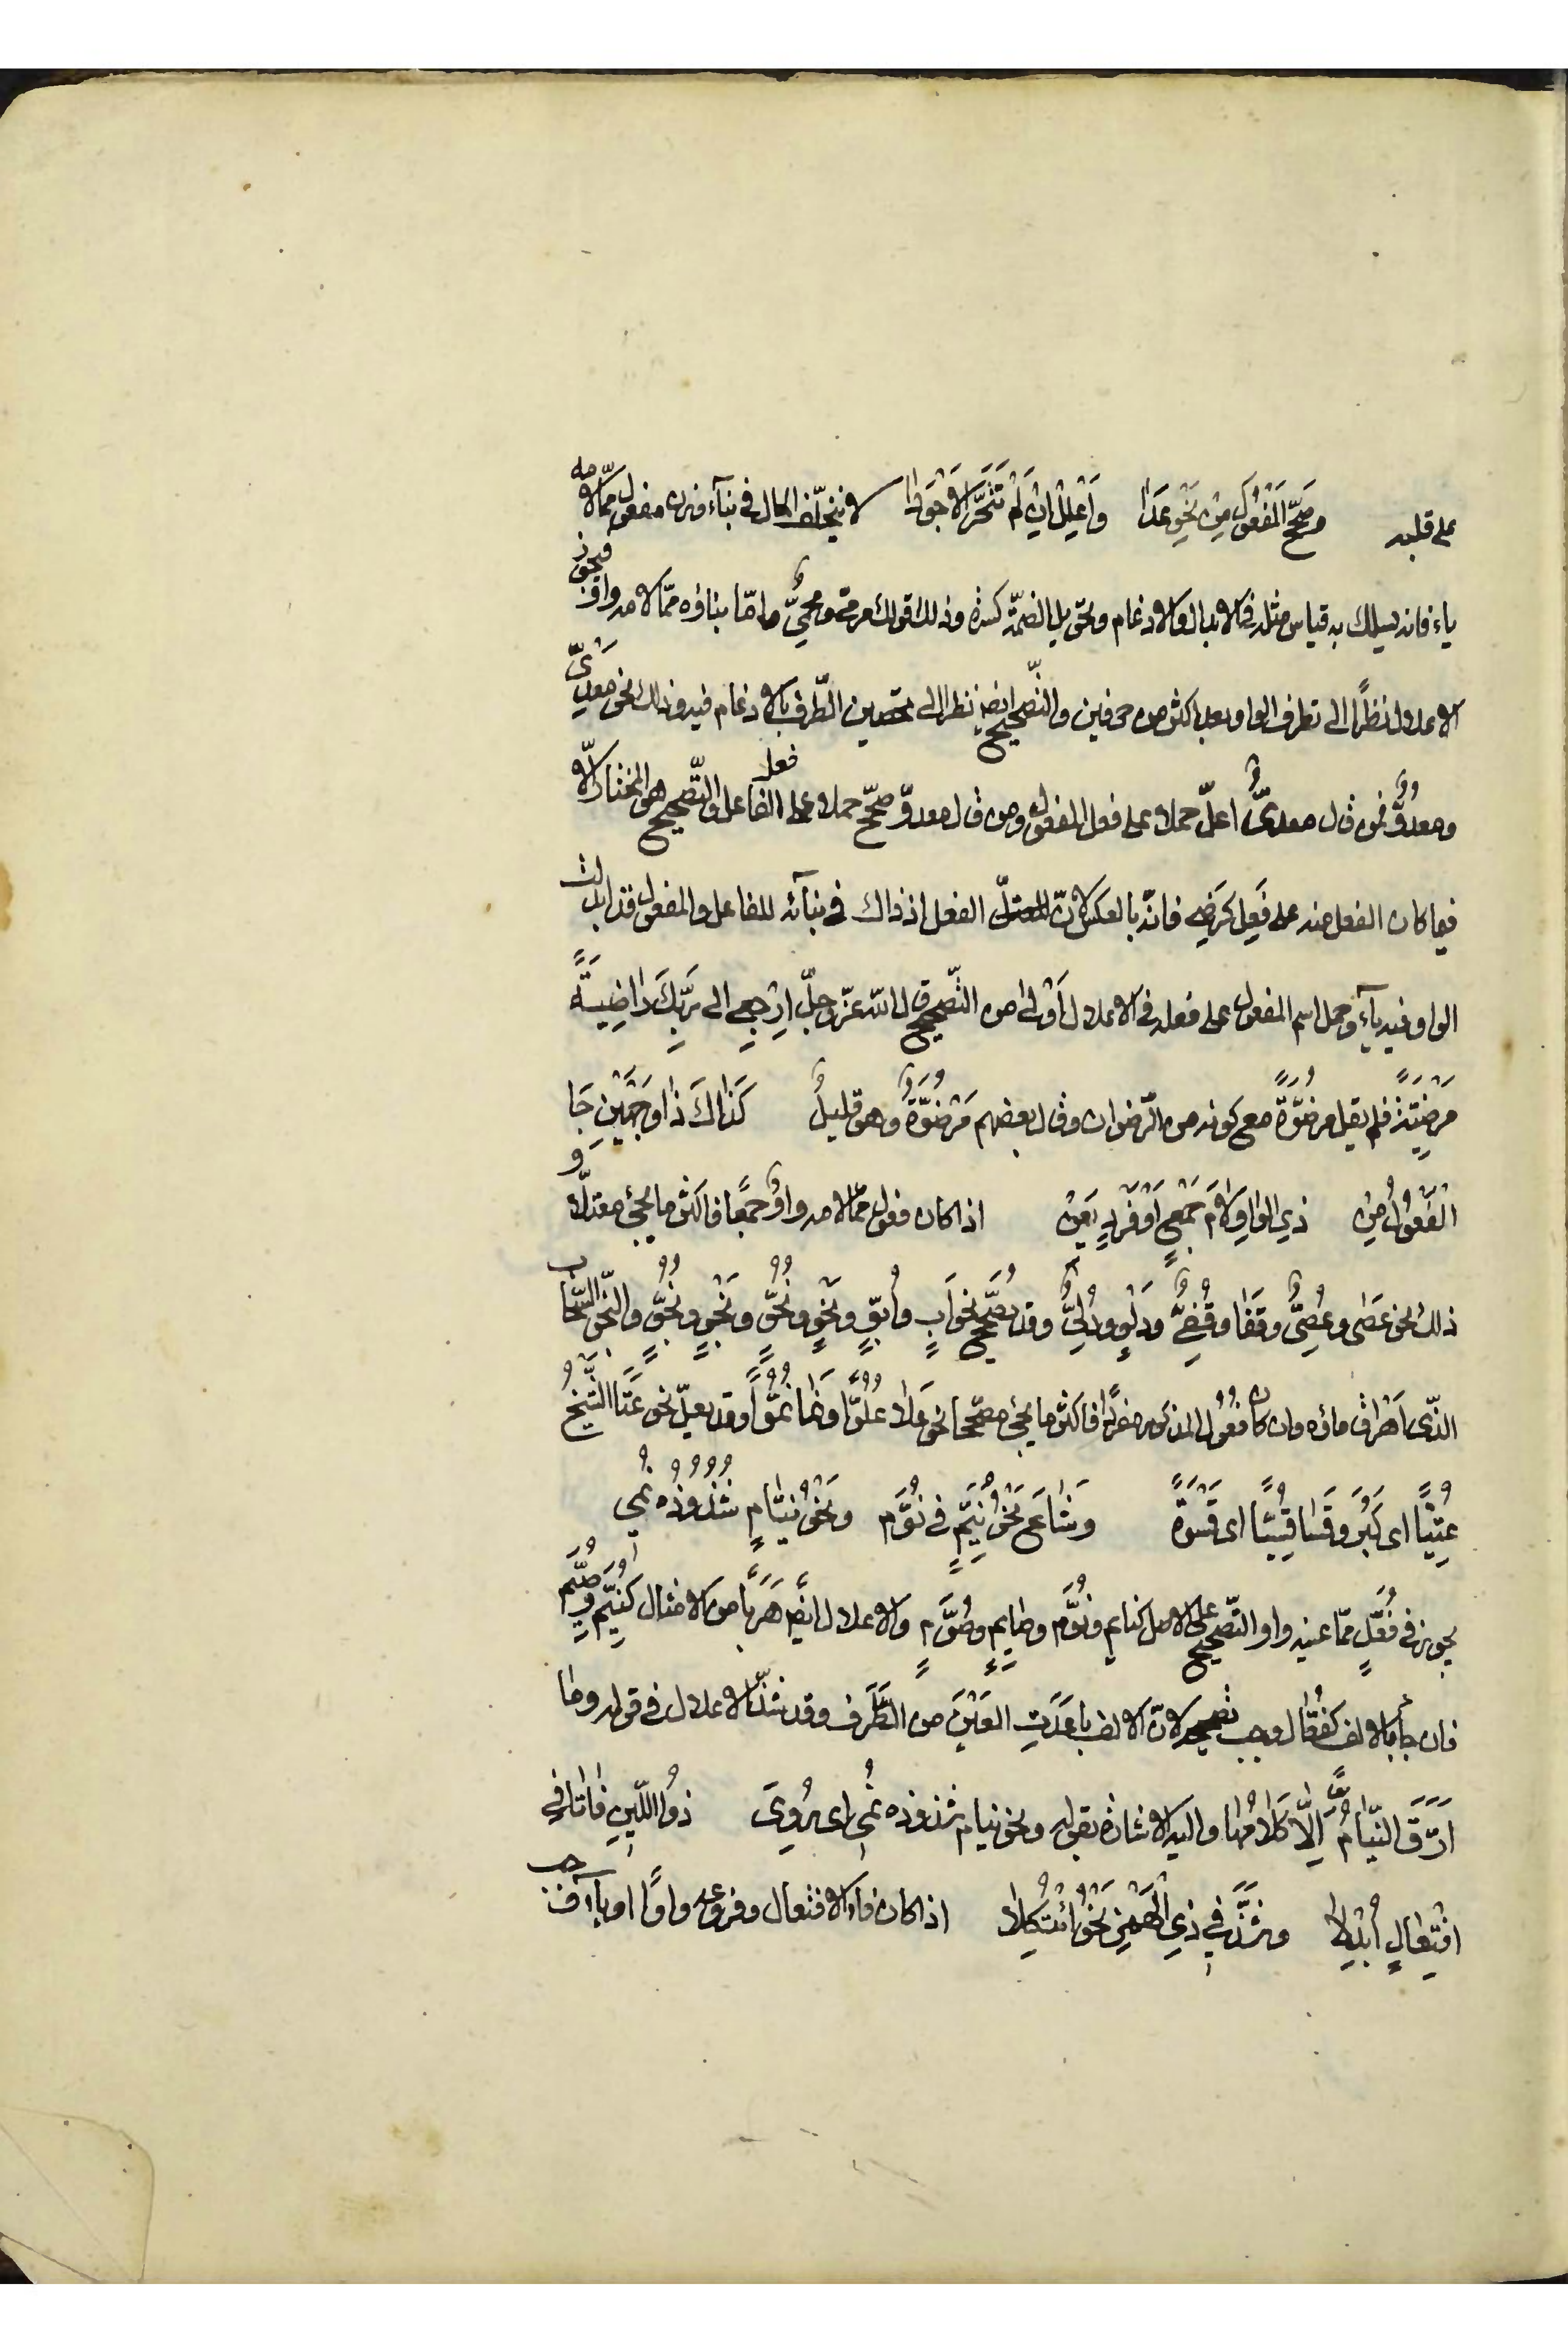 على قلبه وَصَحِّحِ الْمَفْعُولَ مِنْ نَحْوِ عَدَا وَأَعْلِلْ اِنْ لَمْ تَتَحَرَّ الْاَجْوَدَا لا يختلف الحال في بناء وزن مفعول ممّا لامه
ياء فانه يسلك به قياس مثله في الابدال والادغام وتحويل الضمّة كسرة وذلك قولك مرمىّ ومحمىّ واما بناؤه ممّا لامه واو فيجوز
الاعلال نظرًا الى تطرف الواو بعد اكثر من حرفين والتّصحيح ايضا نظرا الى تحصين الطّرف بالادغام فيه وذلك نحو معدىّ
ومعدوّ فمن قال معدىّ اعلّ حملا على فعل المفعول ومن قال معدوّ صحّح حملا على فعل الفاعل والتّصحيح هو المختار الّا
فيما كان الفعل منه على فَعِل كرَضِىَ فانّه بالعكس لانّ الفعل اذ ذاك في بنائه للفاعل والمفعول قد ابدلت
الواو فيه ياء وحمل اسم المفعول على فعله في الاعلال اَوْلى من التّصحيح قال الله عزّ وجلّ اِرْجِعِي الى رَبِّكِ رَاضِيَةً
مَرْضِيَّةً فلم يقل مرضوّةً مع كونه من الرّضوان وقال بعضهم مَرْضُوَّةٌ وهو قليلٌ كَذَاكَ ذَا وَجْهَيْنِ جَا
الْفُعُوْلُ مِنْ ذِي الْوَاوِ لَامَ جَمْعٍ اَوْ فَرْدٍ يَعِنْ اذا كان فعول ممّا لامه واوٌ جمعًا فاكثر ما يجيء معتلّا و
ذلك نحو عَصَى وعُصِىٌّ وقَفَا وقُفِىٌّ ودَلْوٍ ودُلِىٌّ وقد يُصَحَّح نحو اَبٍ واُبُوٍّ ونَحْوٍ ونُحُوٍّ ونَجْوٍ ونُجُوٍّ والنّجو السّحاب
الذّى اَهْراق ماؤه وان كان فُعُول المذكور مفردًا فاكثر ما يجيء مصحّحا نحو عَلَا عُلُوًّا ونَمَا نُمُوًّا وقد يعلّ نحو عَتَا الشَّيْخُ
عُتِيًّا اى كَبُرَ وقَسَا قِسِيًّا اى قَسْوَةً وَشَاعَ نَحْوُ نُيَّمٍ في نُوَّمِ وَنَحْوُ نُيَّامٍ شُذُوذُهُ نُمِي
يجوز في فُعَّلٍ ممّا عينه واو التّصحيح على الاصل كنايم ونُوَّم وصايم وصُوَّم والاعلال ايضا هَرَبًا من الامثال كنُيَّم وصُيَّم
فان جاء بالالف كفُعَّال وجب تصحيحه لانّ الالف باعَدَتِ العَيْنَ من الطَّرَف وقد شذّ الاعلال في قوله وما
اَرَّقَ النُّيَّامَ اِلّا كَلَامُهَا واليه الاشارة بقوله ونحو نيام شذوذه نُمِي اى رُوِىَ ذُو اللِّينِ فَا تَا في
افْتِعَالٍ اُبْدِلَا وشَذَّ في ذِي الْهَمْزِ نَحْوُ ائْتَكَلَا اذا كان فاء الافتعال وفروعه واوًا او ياء وجب